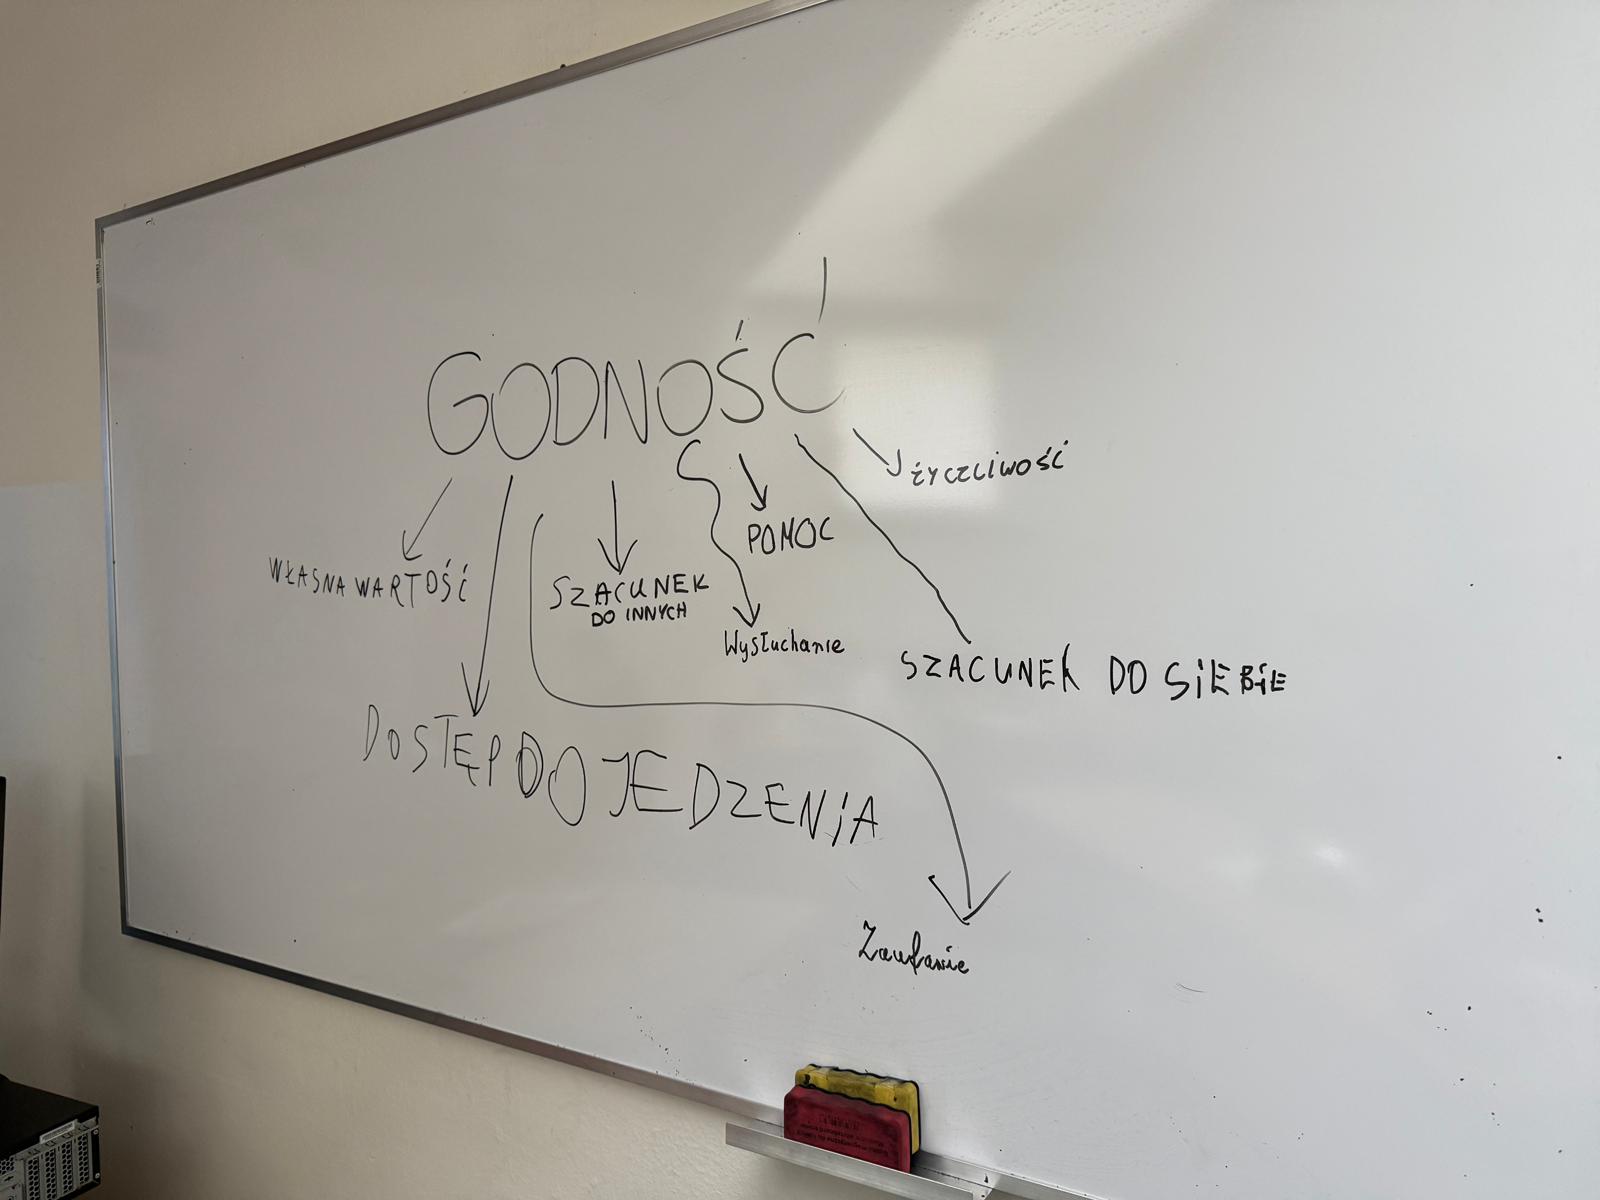 GODNOŚĆ
życzliwość
POMOC
WŁASNA WARTOŚĆ
SZACUNEK
DO INNYCH
Wysłuchanie
SZACUNEK DO SIEBIE
DOSTĘP DO JEDZENIA
Zaufanie